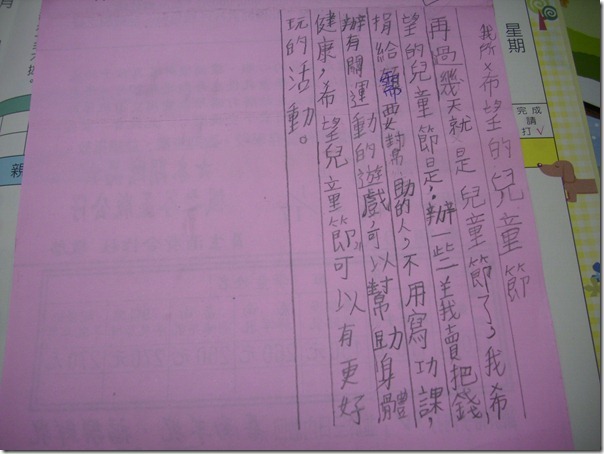 我所希望的兒童節
再過幾天就是兒童節了，我希
望的兒童節是，辦一些義賣把錢
捐給需要幫助的人，不用寫功課，
辦有關運動的遊戲，可以幫助身體
健康，希望兒童節，可以有更好
玩的活動。
星期
完成
請
打ˇ
親